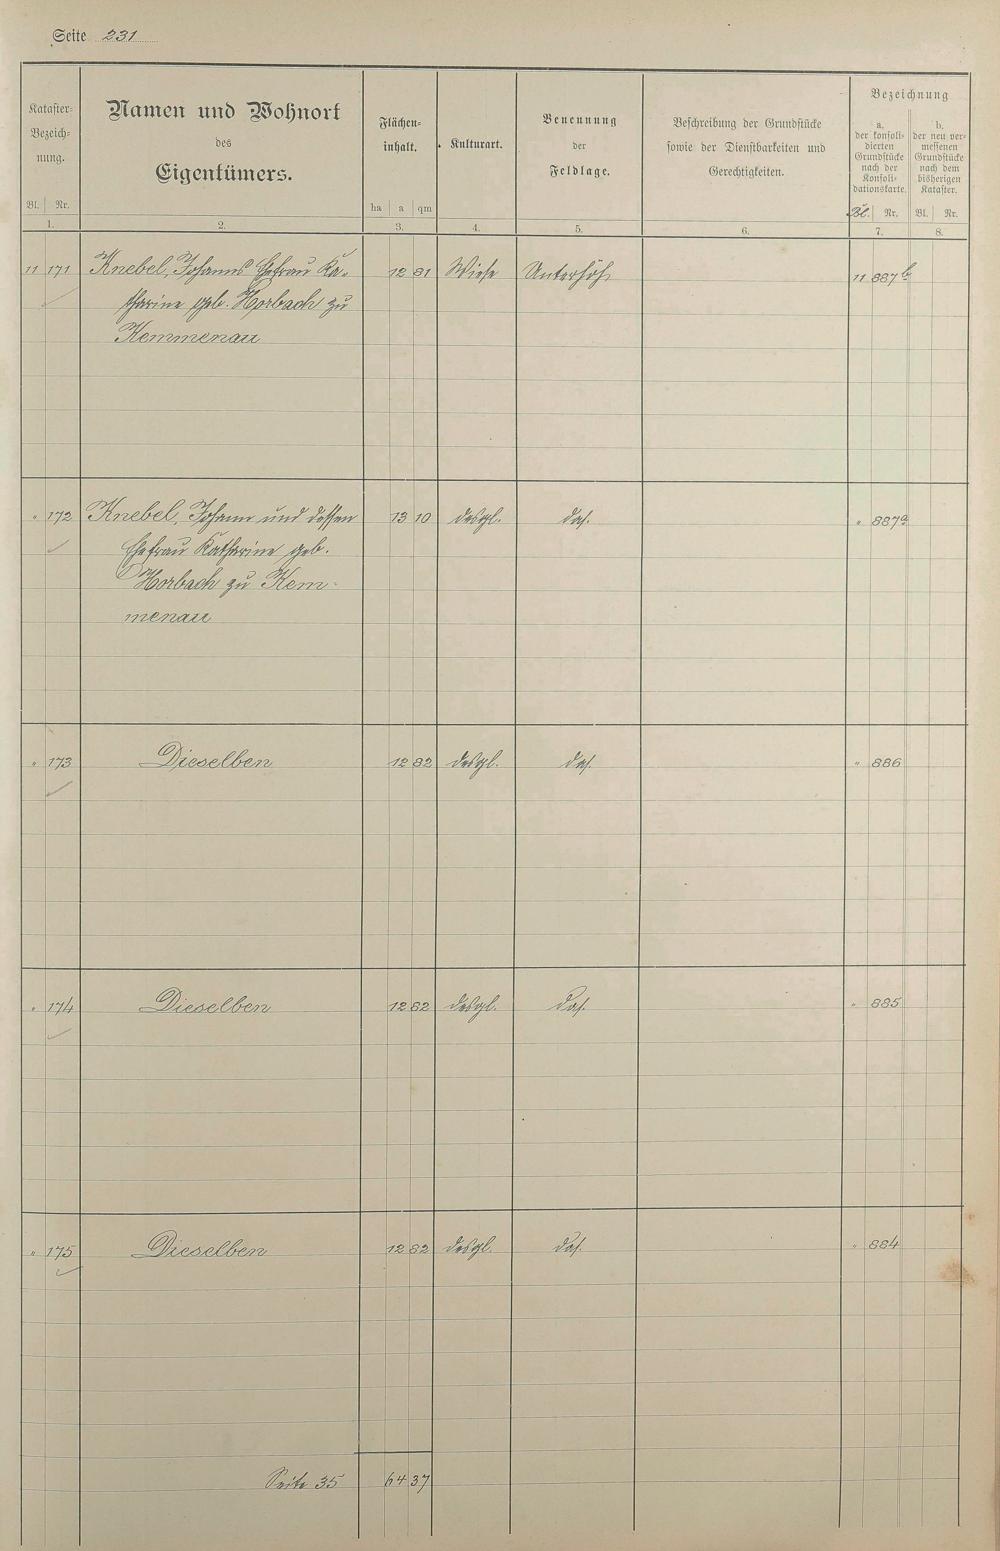 Seite 231
Kataster-
Bezeich-
nung.
Bl. Nr.
1.
Namen und Wohnort
des
Eigentümers.
2.
Flächen-
inhalt.
ha a qm
3.
Kulturart.
4.
Benennung
der
Feldlage.
5.
Beschreibung der Grundstücke
sowie der Dienstbarkeiten und
Gerechtigkeiten.
6.
Bezeichnung
a.
der konsoli-
dierten
Grundstücke
nach der
Konsoli-
dationskarte.
Bl. Nr.
7.
b.
der neu ver-
messenen
Grundstücke
nach dem
bisherigen
Kataster.
Bl. Nr.
8.
11 171 Knebel, Johanns Ehefrau Ka- 12 81 Wiese Unterhöh 11 887b
tharine geb. Horbach zu
Kemmenau
" 172 Knebel, Johann und dessen 13 10 desgl. das. " 887a
Ehefrau Katharine geb.
Horbach zu Kem-
menau
" 173 Dieselben 12 82 desgl. das. " 886
" 174 Dieselben 12 82 desgl. das. " 885
" 175 Dieselben 12 82 desgl. das. " 884
Seite 35 64 37